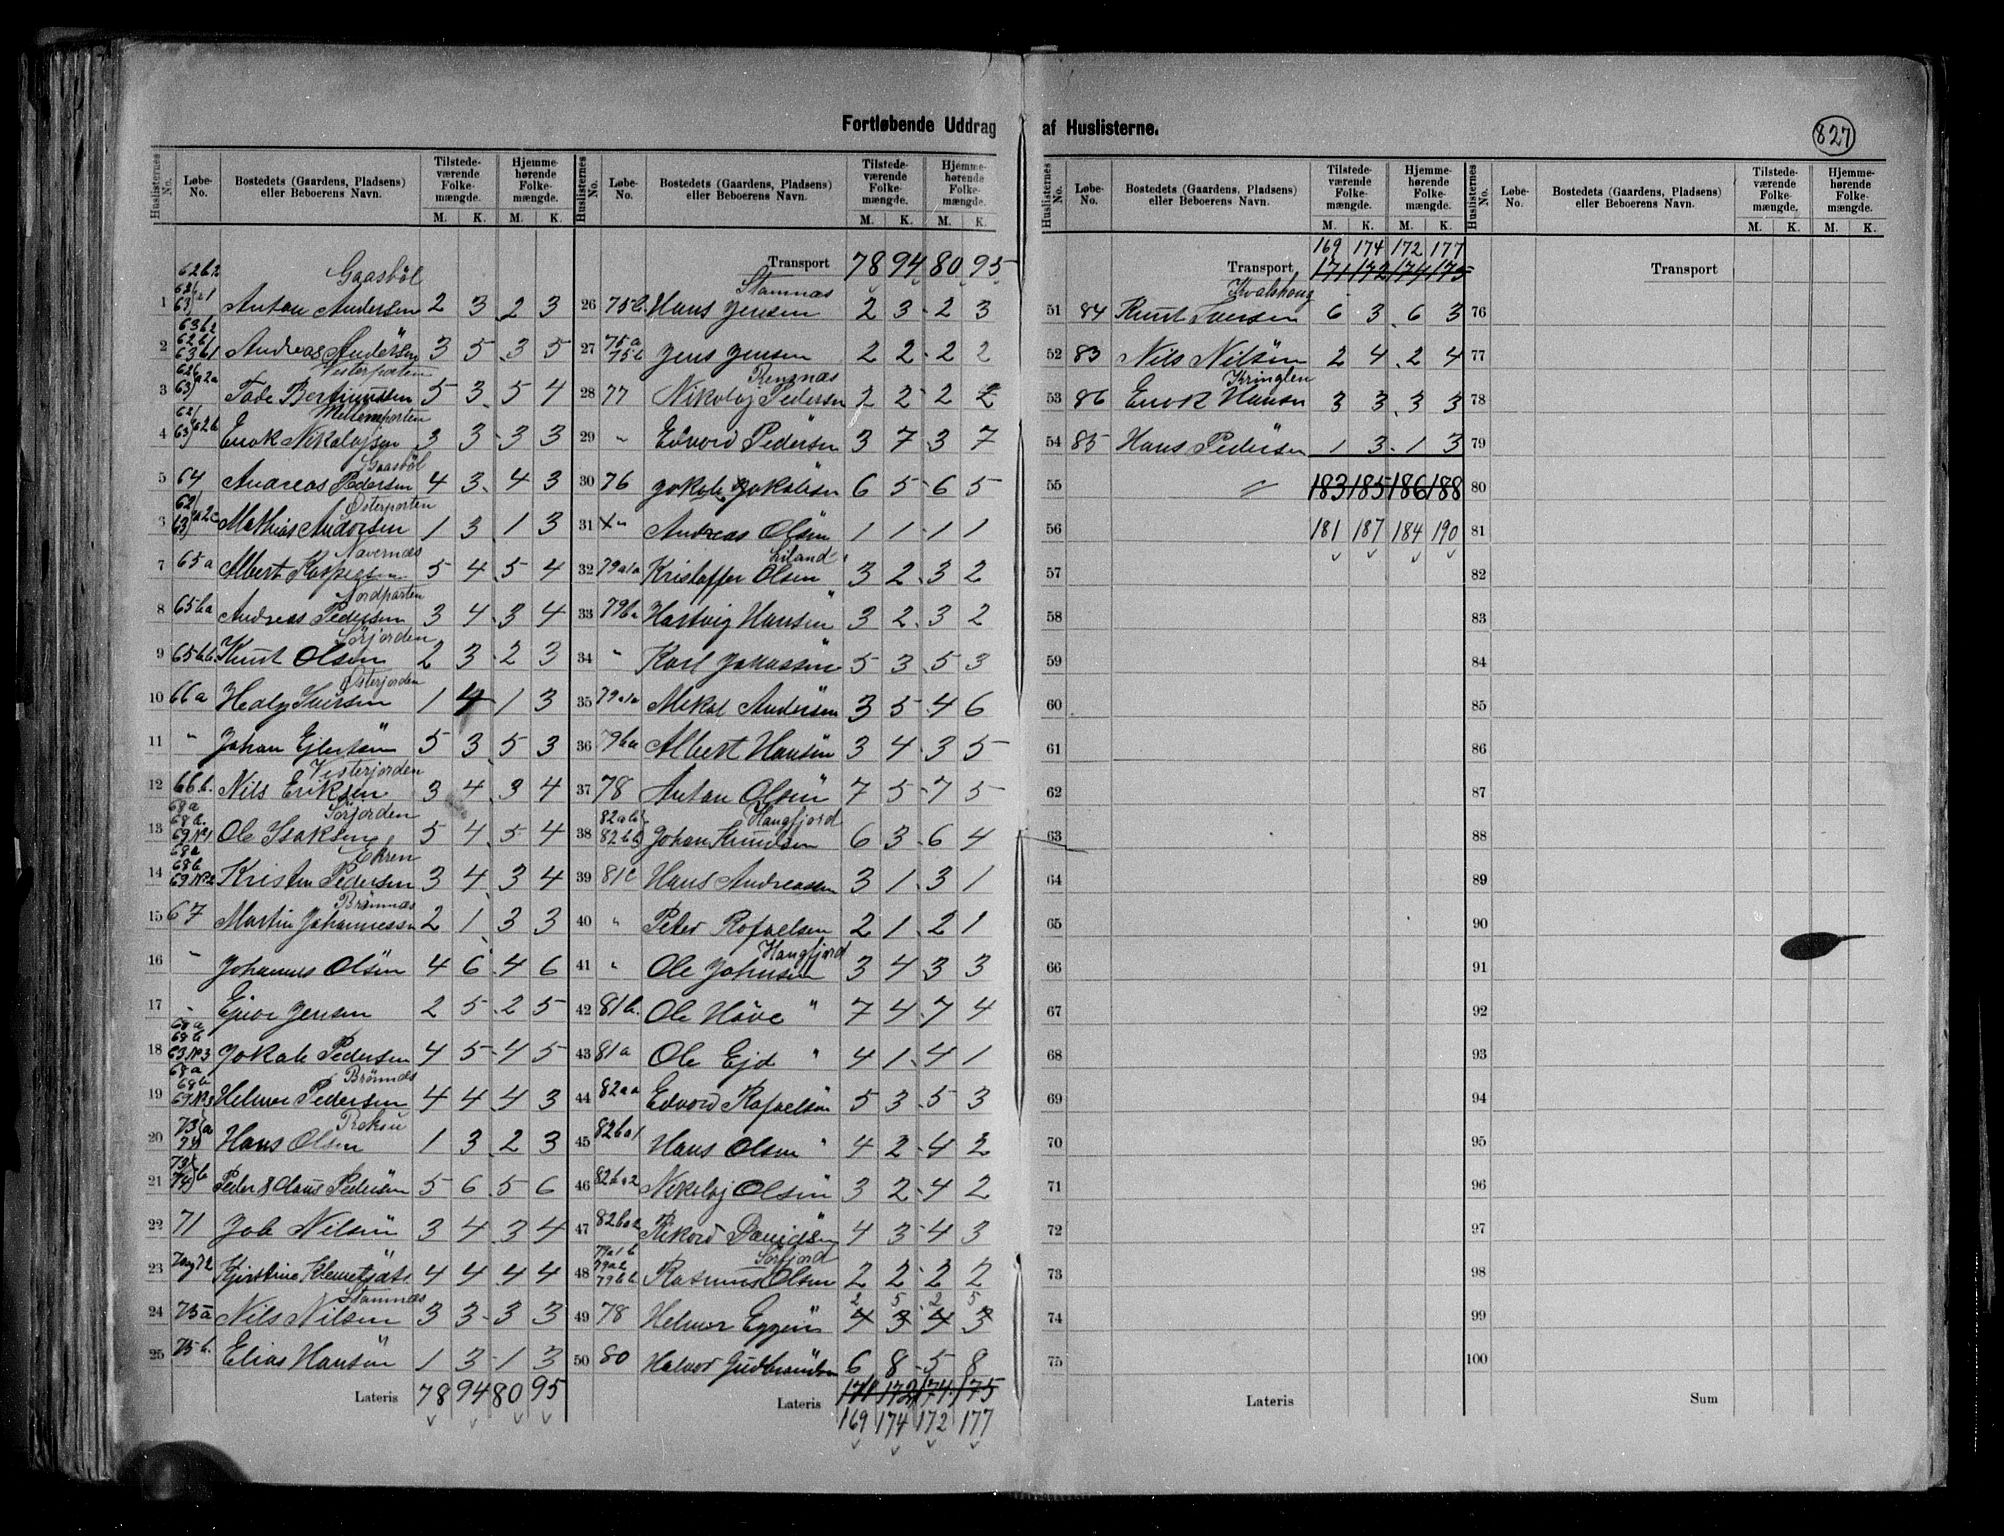 Fortløbende Uddrag af Huslisterne.
827
Huslisternes No. Løbe-No. Bostedets (Gaardens, Pladsens) eller Beboerens Navn. Tilstedeværende Folkemængde. M. K. Hjemmehørende Folkemængde. M. K.
62b2 Gaasböl
1 Anton Andersen 2 3 2 3
2 63b2 62b1 63b1 Andreas Andersen 3 5 3 5
Vesterparten
3 Tobe Berthinussen 5 3 5 4
Mellemparten
4 Enok Nikolajsen 3 3 3 3
Gaasböl
5 64 Andreas Pedersen 4 3 4 3
Österparten
6 Mathias Andersen 1 3 1 3
Navernæs
7 65a Albert Kaspersen 5 4 5 4
Nordparten
8 65ba Andreas Pedersen 3 4 3 4
Sörjorden
9 65bb Knut Olsen 2 3 2 3
Österjorden
10 66a Hedly Iversen 1 4 1 3
11 " Johan Ejlertsen 5 3 5 3
Vesterjorden
12 66b. Nils Eriksen 3 4 3 4
Sörjorden
13 68a 68b. 69 No1 Ole Isaksen 5 4 5 4
Ekren
14 68a 68b 69 No2 Kristen Pedersen 3 4 3 4
Brönnæs
15 67 Martin Johannessen 2 1 3 3
16 " Johannes Olsen 4 6 4 6
17 " Jensen 2 5 2 5
18 68a 68b 69 No3 Jakob Pedersen 4 5 4 5
Brönnæs
19 68a 68b 69 No3 Helmer Pedersen 4 4 4 3
20 73 74 a Hans Olsen 1 3 2 3
21 73 74 b Peder & Claus Pedersen 5 6 5 6
22 71 Job Nilsen 3 4 3 4
23 70 og 72 Kjirstine Klemetsdtr 4 4 4 4
Stamnæs
24 75a Nils Nilsen 3 3 3 3
25 75b. Elias Hansen 1 3 1 3
Lateris 78 94 80 95
Huslisternes No. Løbe-No. Bostedets (Gaardens, Pladsens) eller Beboerens Navn. Tilstedeværende Folkemængde. M. K. Hjemmehørende Folkemængde. M. K.
Transport 78 94 80 95
Stamnæs
26 75b. Hans Jensen 2 3 2 3
27 75a 75b Jens Jensen 2 2 2 2
Rengnæs
28 77 Nikolaj Pedersen 2 2 2 2
29 " Edvord Pedersen 3 7 3 7
30 76 Jakob Jakobsen 6 5 6 5
31 " Andreas Olsen 1 1 1 1
Liland
32 79a1a Kristoffer Olsen 3 2 3 2
33 79ba Hartvig Hansen " 3 2 3 2
34 " Karl Johansen 5 3 5 3
35 79a1a Mikal Andersen 3 5 4 6
36 79ba Albert Hansen 3 4 3 5
37 78 Anton Olsen 7 5 7 5
Haugfjord
38 82ab 82bb Johan Knudsen 6 3 6 4
39 81c Hans Andreassen 3 1 3 1
40 " Peter Rafaelsen 2 1 2 1
Haugfjord
41 " Ole Johnsen 3 4 3 3
42 81b. Ole Hove " 7 4 7 4
43 81a Ole Ejd " 4 1 4 1
44 82aa Edvord Rafaelsen 5 3 5 3
45 82ba1 Hans Olsen " 4 2 4 2
46 82ba2 Nikolaj Olsen 3 2 4 2
47 82ba2 Rikord Danielsen 4 3 4 3
Sörfjord
48 79a1b 79a2 79bb Rasmus Olsen 2 2 2 2
2 5 2 5
49 78 Helmer Eggen 4 3 4 3
50 80 Halvor Gudbrandsen 6 8 5 8
Lateris 171 172 174 175
169 174 172 177
Huslisternes No. Løbe-No. Bostedets (Gaardens, Pladsens) eller Beboerens Navn. Tilstedeværende Folkemængde. M. K. Hjemmehørende Folkemængde. M. K.
169 174 172 177
Transport 171 172 174 175
Kvalshaug
51 84 Knut Iversen 6 3 6 3
52 83 Nils Nilsen 2 4 2 4
Kringlen
53 86 Enok Hansen 3 3 3 3
54 85 Hans Pedersen 1 3 1 3
55 " 183 185 186 188
56 181 187 184 190
57
58
59
60
61
62
63
64
65
66
67
68
69
70
71
72
73
74
75
Lateris
Huslisternes No. Løbe-No. Bostedets (Gaardens, Pladsens) eller Beboerens Navn. Tilstedeværende Folkemængde. M. K. Hjemmehørende Folkemængde. M. K.
Transport
76
77
78
79
80
81
82
83
84
85
86
87
88
89
90
91
92
93
94
95
96
97
98
99
100
Sum